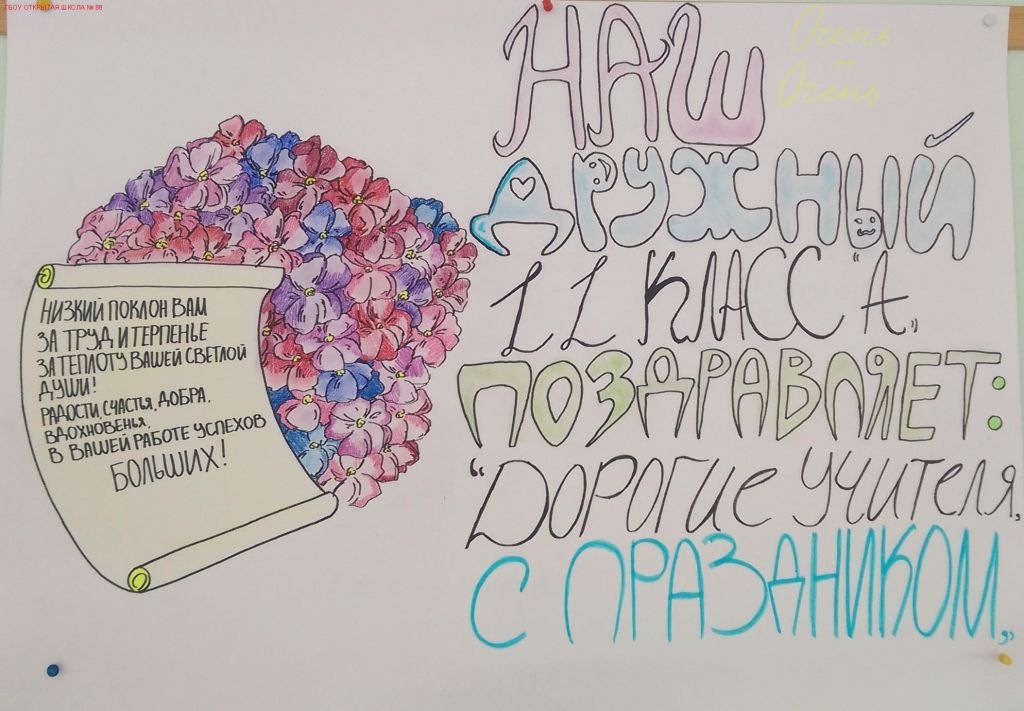 ГБОУ ОТКРЫТАЯ ШКОЛА № 88
НАШ
Очень -
Очень
ДРУЖНЫЙ
11 КЛАСС "А"
ПОЗДРАВЛЯЕТ:
"ДОРОГИЕ УЧИТЕЛЯ,
С ПРАЗДНИКОМ"
НИЗКИЙ ПОКЛОН ВАМ
ЗА ТРУД И ТЕРПЕНЬЕ
ЗА ТЕПЛОТУ ВАШЕЙ СВЕТЛОЙ
ДУШИ!
РАДОСТИ, СЧАСТЬЯ, ДОБРА,
ВДОХНОВЕНЬЯ,
В ВАШЕЙ РАБОТЕ УСПЕХОВ
БОЛЬШИХ!